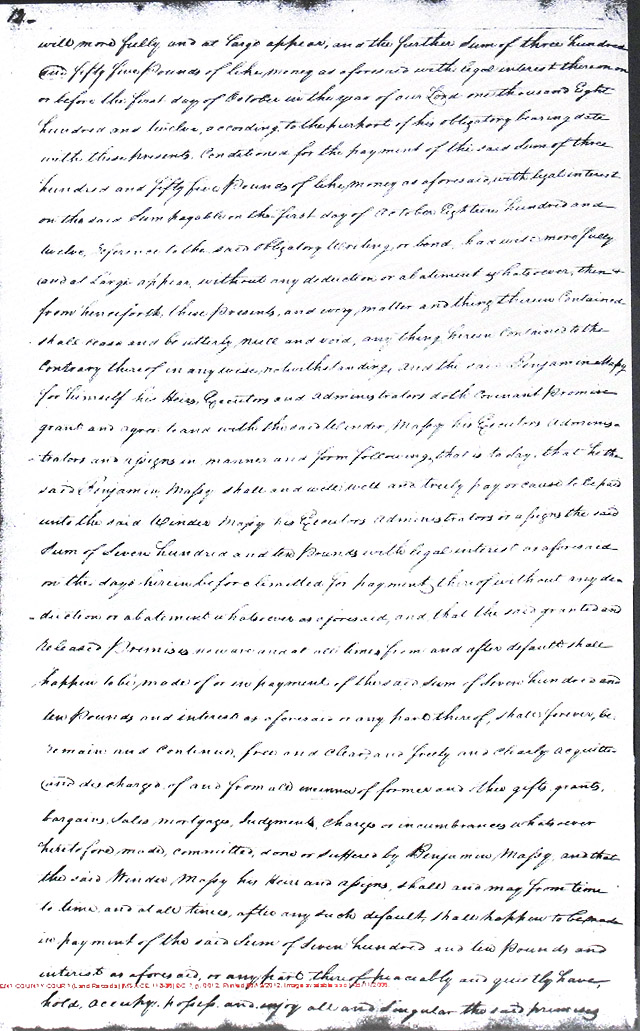 12.
will more fully and at large appear, and the further Sum of three hundred
and fifty five Pounds of like money as aforesaid with legal interest thereon on
or before the first day of October in the year of our Lord one thousand Eight
hundred and twelve, according to the purport of his obligatory bearing date
with these presents. Conditioned for the payment of the said Sum of three
hundred and fifty five Pounds of like money as aforesaid, with legal interest
on the said Sum payable on the first day of October Eighteen hundred and
twelve, reference to the said obligatory Writing, or bond, had will more fully
and at Large appear, without any deduction or abatement whatsoever, then &
from henceforth, these Presents, and every matter and thing therein Contained
shall cease and be utterly null and void, any thing herein Contained to the
Contrary thereof in any wise notwithstanding, and the said Benjamin Massy
for himself his Heirs, Executors and Administrators doth Covenant Promise
grant and agree to and with the said Winder Massy his Executors Adminis-
-trators and assigns in manner and form following, that is to say, that he the
said Benjamin Massy shall and will well and truly pay or cause to be paid
unto the said Winder Massy his Executors Administrators or assigns the said
Sum of Seven hundred and ten Pounds with legal interest as aforesaid
on the days herein before limitted for payment thereof without any de-
-duction or abatement whatsoever as aforesaid, and that the said granted and
released Premises now are and at all times from and after default shall
happen to be, made of or in payment of the said sum of Seven hundred and
ten Pounds and interest as aforesaid or any part thereof, shall forever, be
remain and Continue, free and Clear, and freely and clearly acquitte-
and discharged, of and from all manner of former and other gifts, grants,
bargains, Sales, mortgages, Judgments, Charges or incumbrances whatsoever
heretofore, made, committed, done or suffered by Benjamin Massy, and that
the said Winder Massy his Heirs and assigns, shall and may from time
to time and at all times, after any such default, shall happen to be made
in payment of the said Sum of Seven hundred and ten Pounds and
interest as aforesaid, or any part thereof peaceably and quietly have
hold, occupy, possess and enjoy all and Singular the said premises
COUNTY COURT (Land Records)